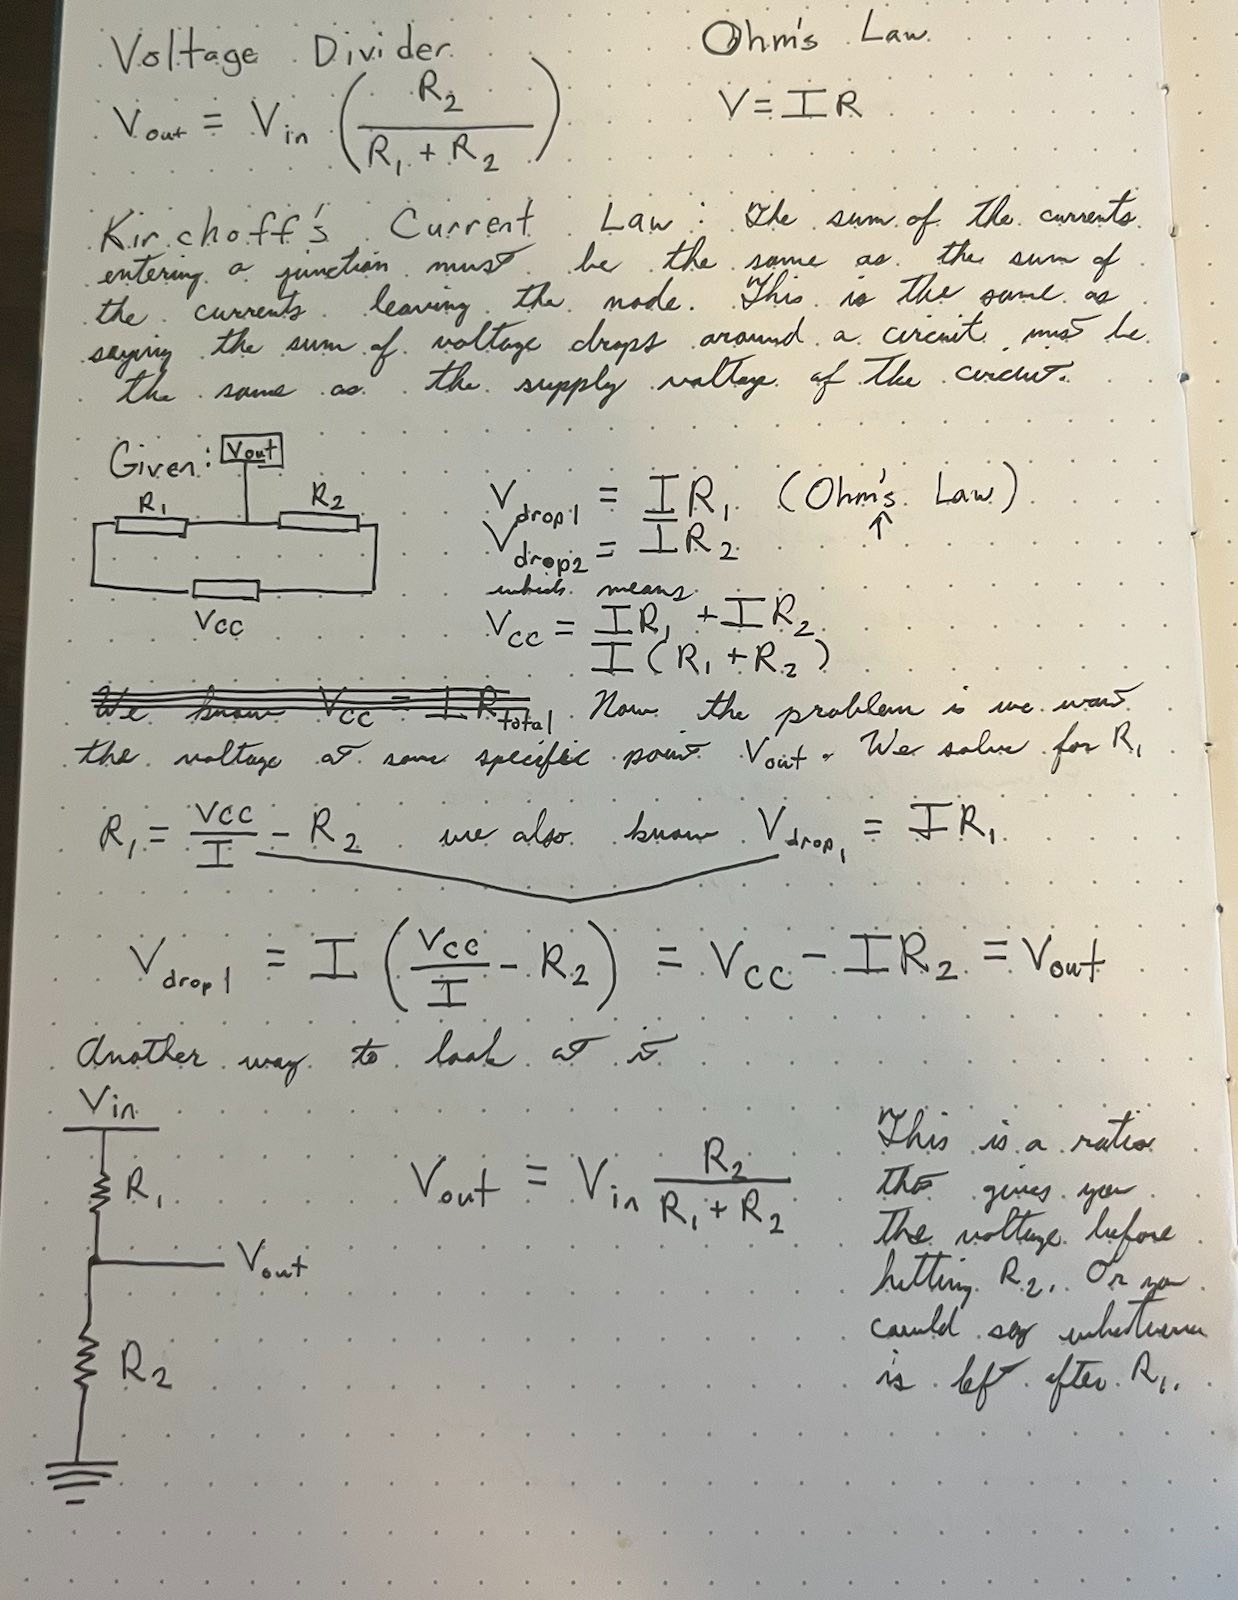 Voltage Divider
Ohm's Law
Vout = Vin (R2 / (R1 + R2))
V = IR
Kirchoff's Current Law: The sum of the currents
entering a junction must be the same as the sum of
the currents leaving the node. This is the same as
saying the sum of voltage drops around a circuit must be
the same as the supply voltage of the circuit.
Given:
Vout
R1
R2
Vcc
Vdrop1 = IR1 (Ohm's Law)
↑
Vdrop2 = IR2
which means
Vcc = IR1 + IR2
I(R1 + R2)
We know Vcc = I Rtotal Now the problem is we want
the voltage at some specific point Vout. We solve for R1
R1 = Vcc/I - R2 we also know Vdrop1 = IR1
Vdrop1 = I (Vcc/I - R2) = Vcc - IR2 = Vout
Another way to look at it
Vin
R1
Vout
R2
Vout = Vin R2 / (R1 + R2)
This is a ratio
that gives you
the voltage before
hitting R2. Or you
could say whatever
is left after R1.